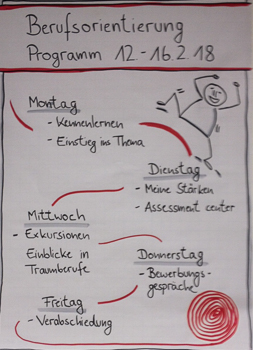 Berufsorientierung
Programm 12.-16.2.18
Montag
- Kennenlernen
- Einstieg ins Thema
Dienstag
- Meine Stärken
- Assessment center
Mittwoch
- Exkursionen
Einblicke in
Traumberufe
Donnerstag
- Bewerbungs-
gespräche
Freitag
- Verabschiedung